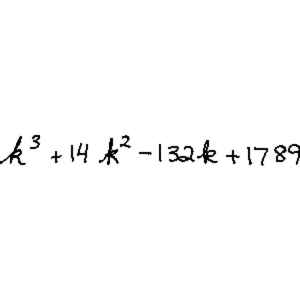 k³ + 14 k² − 132k + 1789